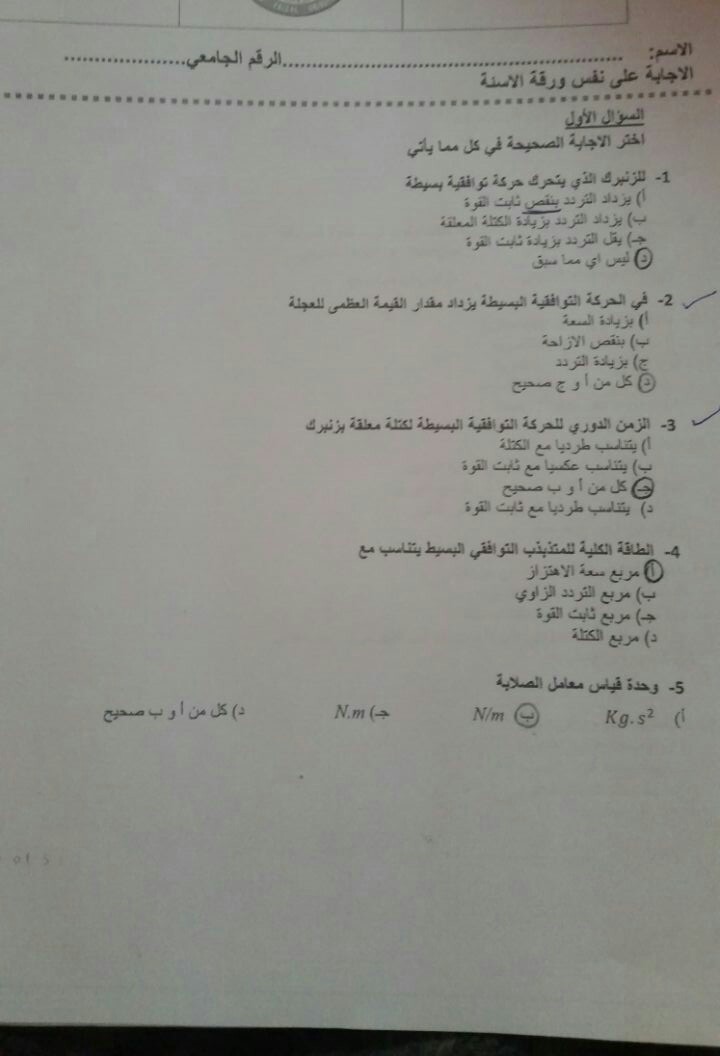 الاسم: ........................................................الرقم الجامعي.....................
الاجابة على نفس ورقة الاسئة
السؤال الأول
اختر الاجابة الصحيحة في كل مما يأتي
1- للزنبرك الذي يتحرك حركة توافقية بسيطة
أ) يزداد التردد بنقص ثابت القوة
ب) يزداد التردد بزيادة الكتلة المعلقة
جـ) يقل التردد بزيادة ثابت القوة
د) ليس اي مما سبق
2- في الحركة التوافقية البسيطة يزداد مقدار القيمة العظمى للعجلة
أ) بزيادة السعة
ب) بنقص الازاحة
ج) بزيادة التردد
د) كل من أ و ج صحيح
3- الزمن الدوري للحركة التوافقية البسيطة لكتلة معلقة بزنبرك
أ) يتناسب طرديا مع الكتلة
ب) يتناسب عكسيا مع ثابت القوة
جـ) كل من أ و ب صحيح
د) يتناسب طرديا مع ثابت القوة
4- الطاقة الكلية للمتذبذب التوافقي البسيط يتناسب مع
أ) مربع سعة الاهتزاز
ب) مربع التردد الزاوي
جـ) مربع ثابت القوة
د) مربع الكتلة
5- وحدة قياس معامل الصلابة
أ) Kg.s² ب) N/m جـ) N.m د) كل من أ و ب صحيح